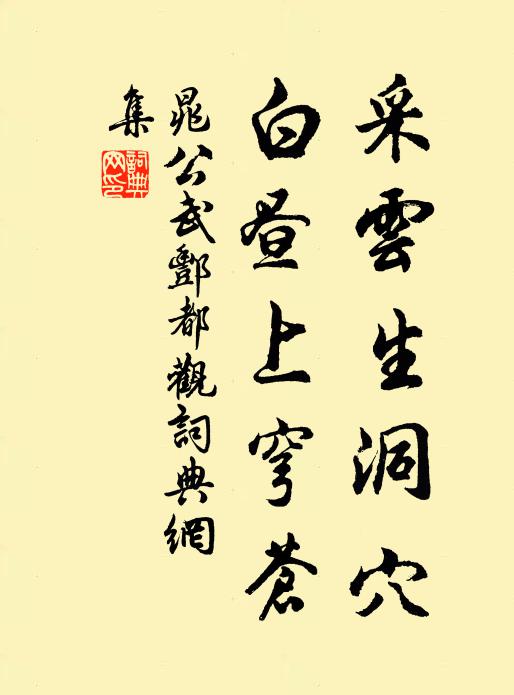 采雲生洞穴
白昼上穹蒼
晁公武酆都觀詞典網
集
詞典网印